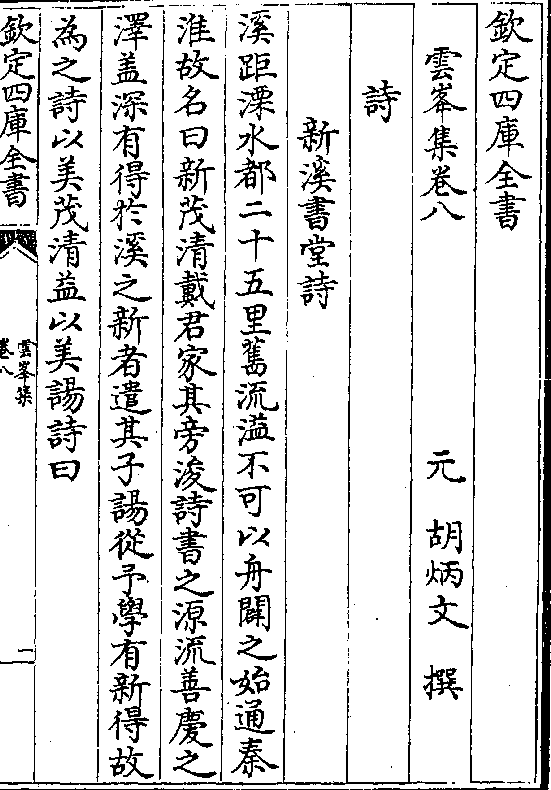 欽定四庫全書
雲峯集卷八
元 胡炳文 撰
詩
新溪書堂詩
溪距溧水都二十五里舊流溢不可以舟闢之始通秦
淮故名曰新茂清戴君家其旁浚詩書之源流善慶之
澤盖深有得於溪之新者遣其子諹從予學有新得故
為之詩以美茂清益以美諹詩曰
欽定四庫全書
雲峯集
卷八
一